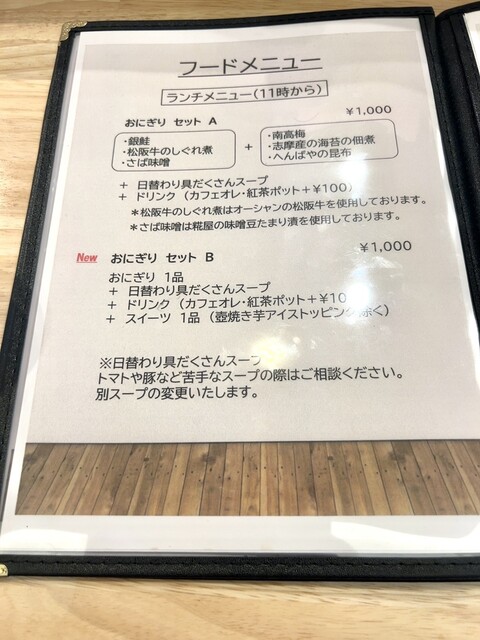 フードメニュー
ランチメニュー(11時から)
おにぎり セット A ￥1,000
・銀鮭
・松阪牛のしぐれ煮
・さば味噌
+
・南高梅
・志摩産の海苔の佃煮
・へんばやの昆布
+ 日替わり具だくさんスープ
+ ドリンク (カフェオレ・紅茶ポット+￥100)
＊松阪牛のしぐれ煮はオーシャンの松阪牛を使用しております。
＊さば味噌は糀屋の味噌豆たまり漬を使用しております。
New おにぎり セット B ￥1,000
おにぎり 1品
+ 日替わり具だくさんスープ
+ ドリンク (カフェオレ・紅茶ポット+￥10
+ スイーツ 1品 (壺焼き芋アイストッピング除く)
※日替わり具だくさんスープ
トマトや豚など苦手なスープの際はご相談ください。
別スープの変更いたします。